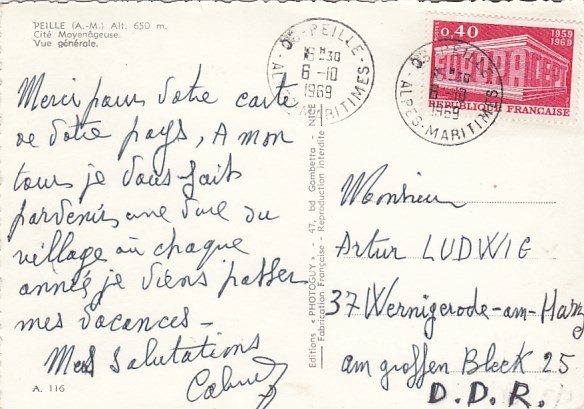 PEILLE (A.-M.) Alt. 650 m.
Cité Moyenâgeuse.
Vue générale.
Merci pour Votre carte
de Votre pays, A mon
tour je Vous fait
parvenir une vue du
village où chaque
année je viens passer
mes vacances -
Mes Salutations
A. 116
Editions « PHOTOGUY » - 47, bd Gambetta - NICE
Fabrication Française - Reproduction interdite
06 - PEILLE -
16H30
6 -10
1969
ALPES-MARITIMES
0,40
1959
1969
EUROPA CEPT
REPUBLIQUE FRANÇAISE
06 - PEILLE -
16H30
6 -10
1969
ALPES-MARITIMES
Monsieur
Artur LUDWIG
37 Wernigerode-am-Harz
am großen Bleck 25
D.D.R.